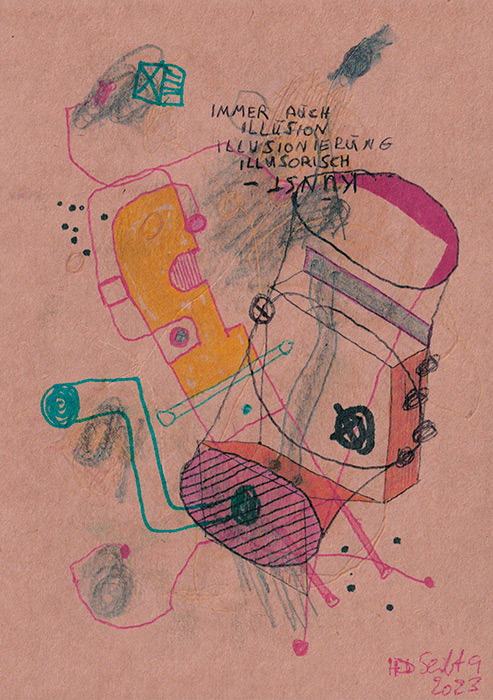 IMMER AUCH
ILLUSION
ILLUSIONIERUNG
ILLUSORISCH
- KUNST
2023